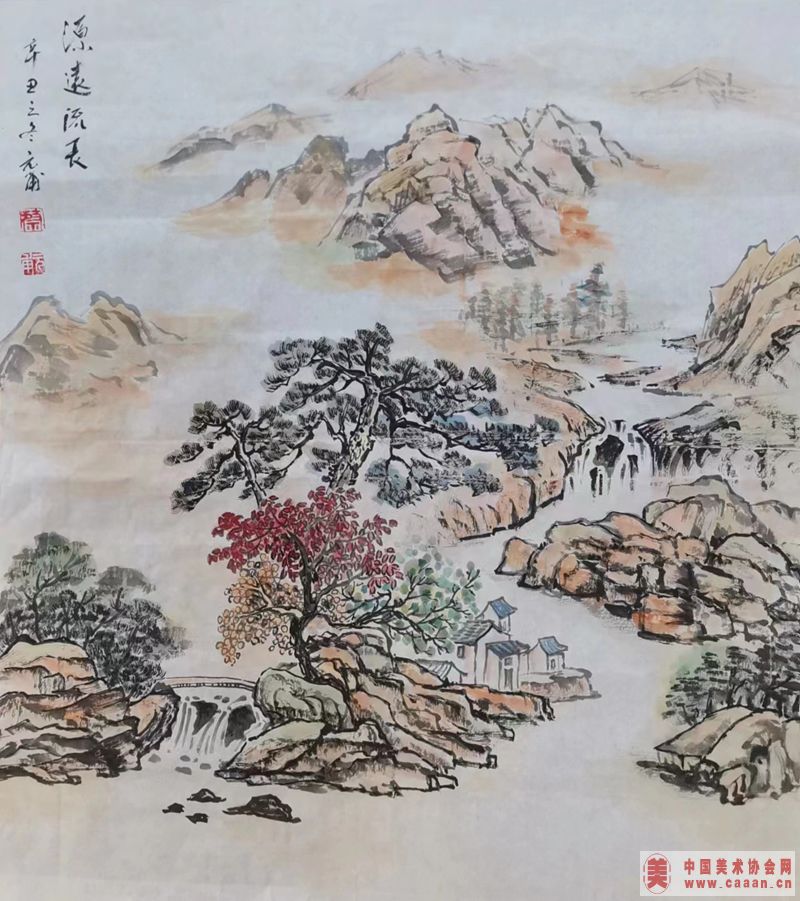 源遠流長
辛丑立冬 元甫
美
中国美术协会网
www.caaan.cn